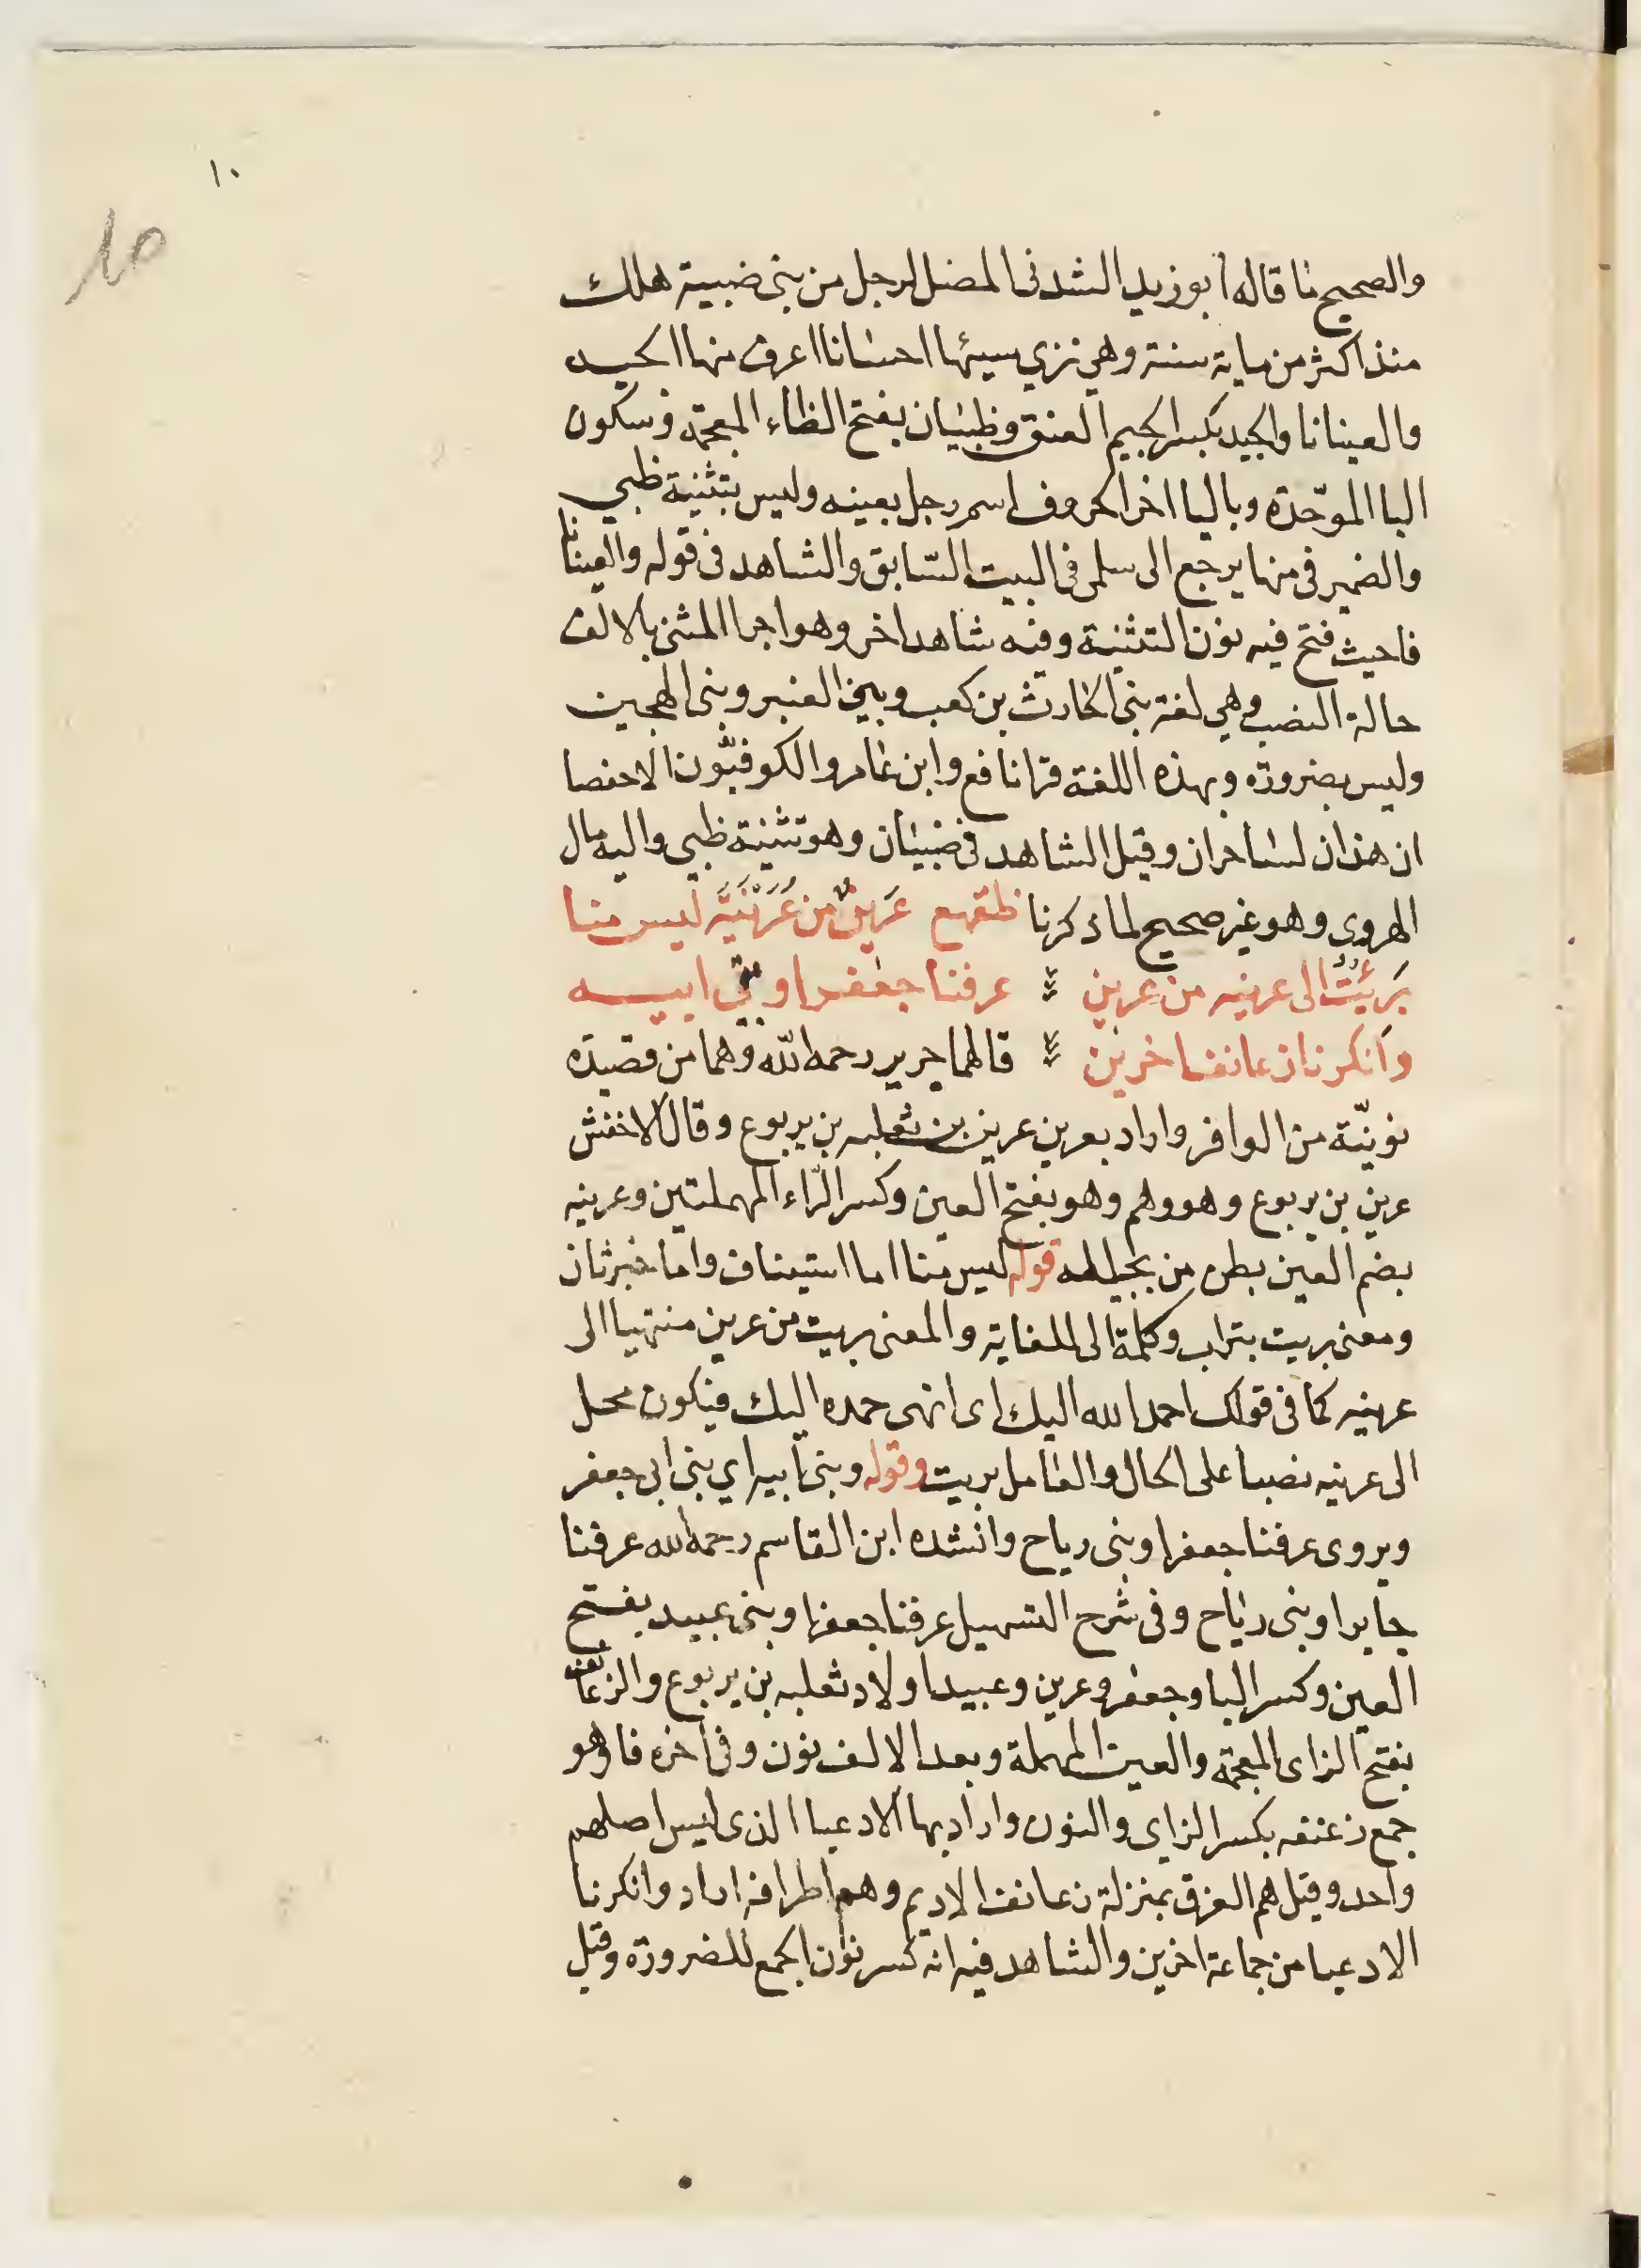 ١٠
10
والصحيح ما قاله ابو زيد انشدنى المفضل لرجل من بنى ضبية هلك
منذ اكثر من ماية سنة وهي تزي سيئها احسانا اعرف منها الجيد
والعينانا والجيد بكسر الجيم العنق وظبيان بفتح الظاء المعجمة وسكون
البا الموحّدة وباليا اخر الحروف اسم رجل بعينه وليس بتثنية ظبي
والضمير فى منها يرجع الى سلمى فى البيت السّابق والشاهد فى قوله والعينانا
فا حيث فتح فيه نون التثنية وفيه شاهد اخر وهو اجرا المثنى بالالف
حالة النصب وهي لغة بنى الحارث بن كعب وبنى العنبر وبنى الهجين
وليس بضرورة وبهذه اللغة قرا نافع وابن عامر والكوفيّون الا حفصا
ان هذان لساحران وقيل الشاهد فى ضبيان وهو تثنية ظبي واليه مال
الهروى وهو غير صحيح لما ذكرنا ظقهع عَرينٌ من عُرَيْنَةَ ليس منا
بَرِئْتُ الى عرينه من عرين عرفنا جعفرا وبنى ابيه
وأنكرنا زعانف اخرين قالهما جرير رحمه الله وهما من قصيدة
نونيّة من الوافر واراد بعرين عرين بن ثعلبه بن يربوع وقال الاخفش
عرين بن يربوع وهو وهم وهو بفتح العين وكسر الرّاء المهملتين وعرينه
بضم العين بطن من بجيلله قوله ليس منا اما استيناف واما خبر ثان
ومعنى بريت بتراب وكلمة الى للغاية والمعنى بريت من عرين منتهيا الى
عرينه كما فى قولك احمد الله اليك اى انهى حمده اليك فيكون محل
الى عرينه نصبا على الحال والعامل بريت وقوله وبنى ابيه اي بنى ابى جعفر
ويروى عرفنا جعفرا وبنى رياح وانشده ابن القاسم رحمه الله عرفنا
جابرا وبنى رياح وفى شرح التسهيل عرفنا جعفرا وبنى عبيد بفتح
العين وكسر البا وجعفر وعرين وعبيد اولاد ثعلبه بن يربوع والزعانف
بفتح الزاى المعجمة والعين المهملة وبعد الالف نون وفى اخره فا وهو
جمع زعنفه بكسر الزاى والنون واراد بها الادعيا الذى ليس اصلهم
واحد وقيل هم الفرق بمنزلة زعانف الاديم وهم اطرافه اراد وانكرنا
الادعيا من جماعة اخرين والشاهد فيه انه كسر نون الجمع للضرورة وقيل